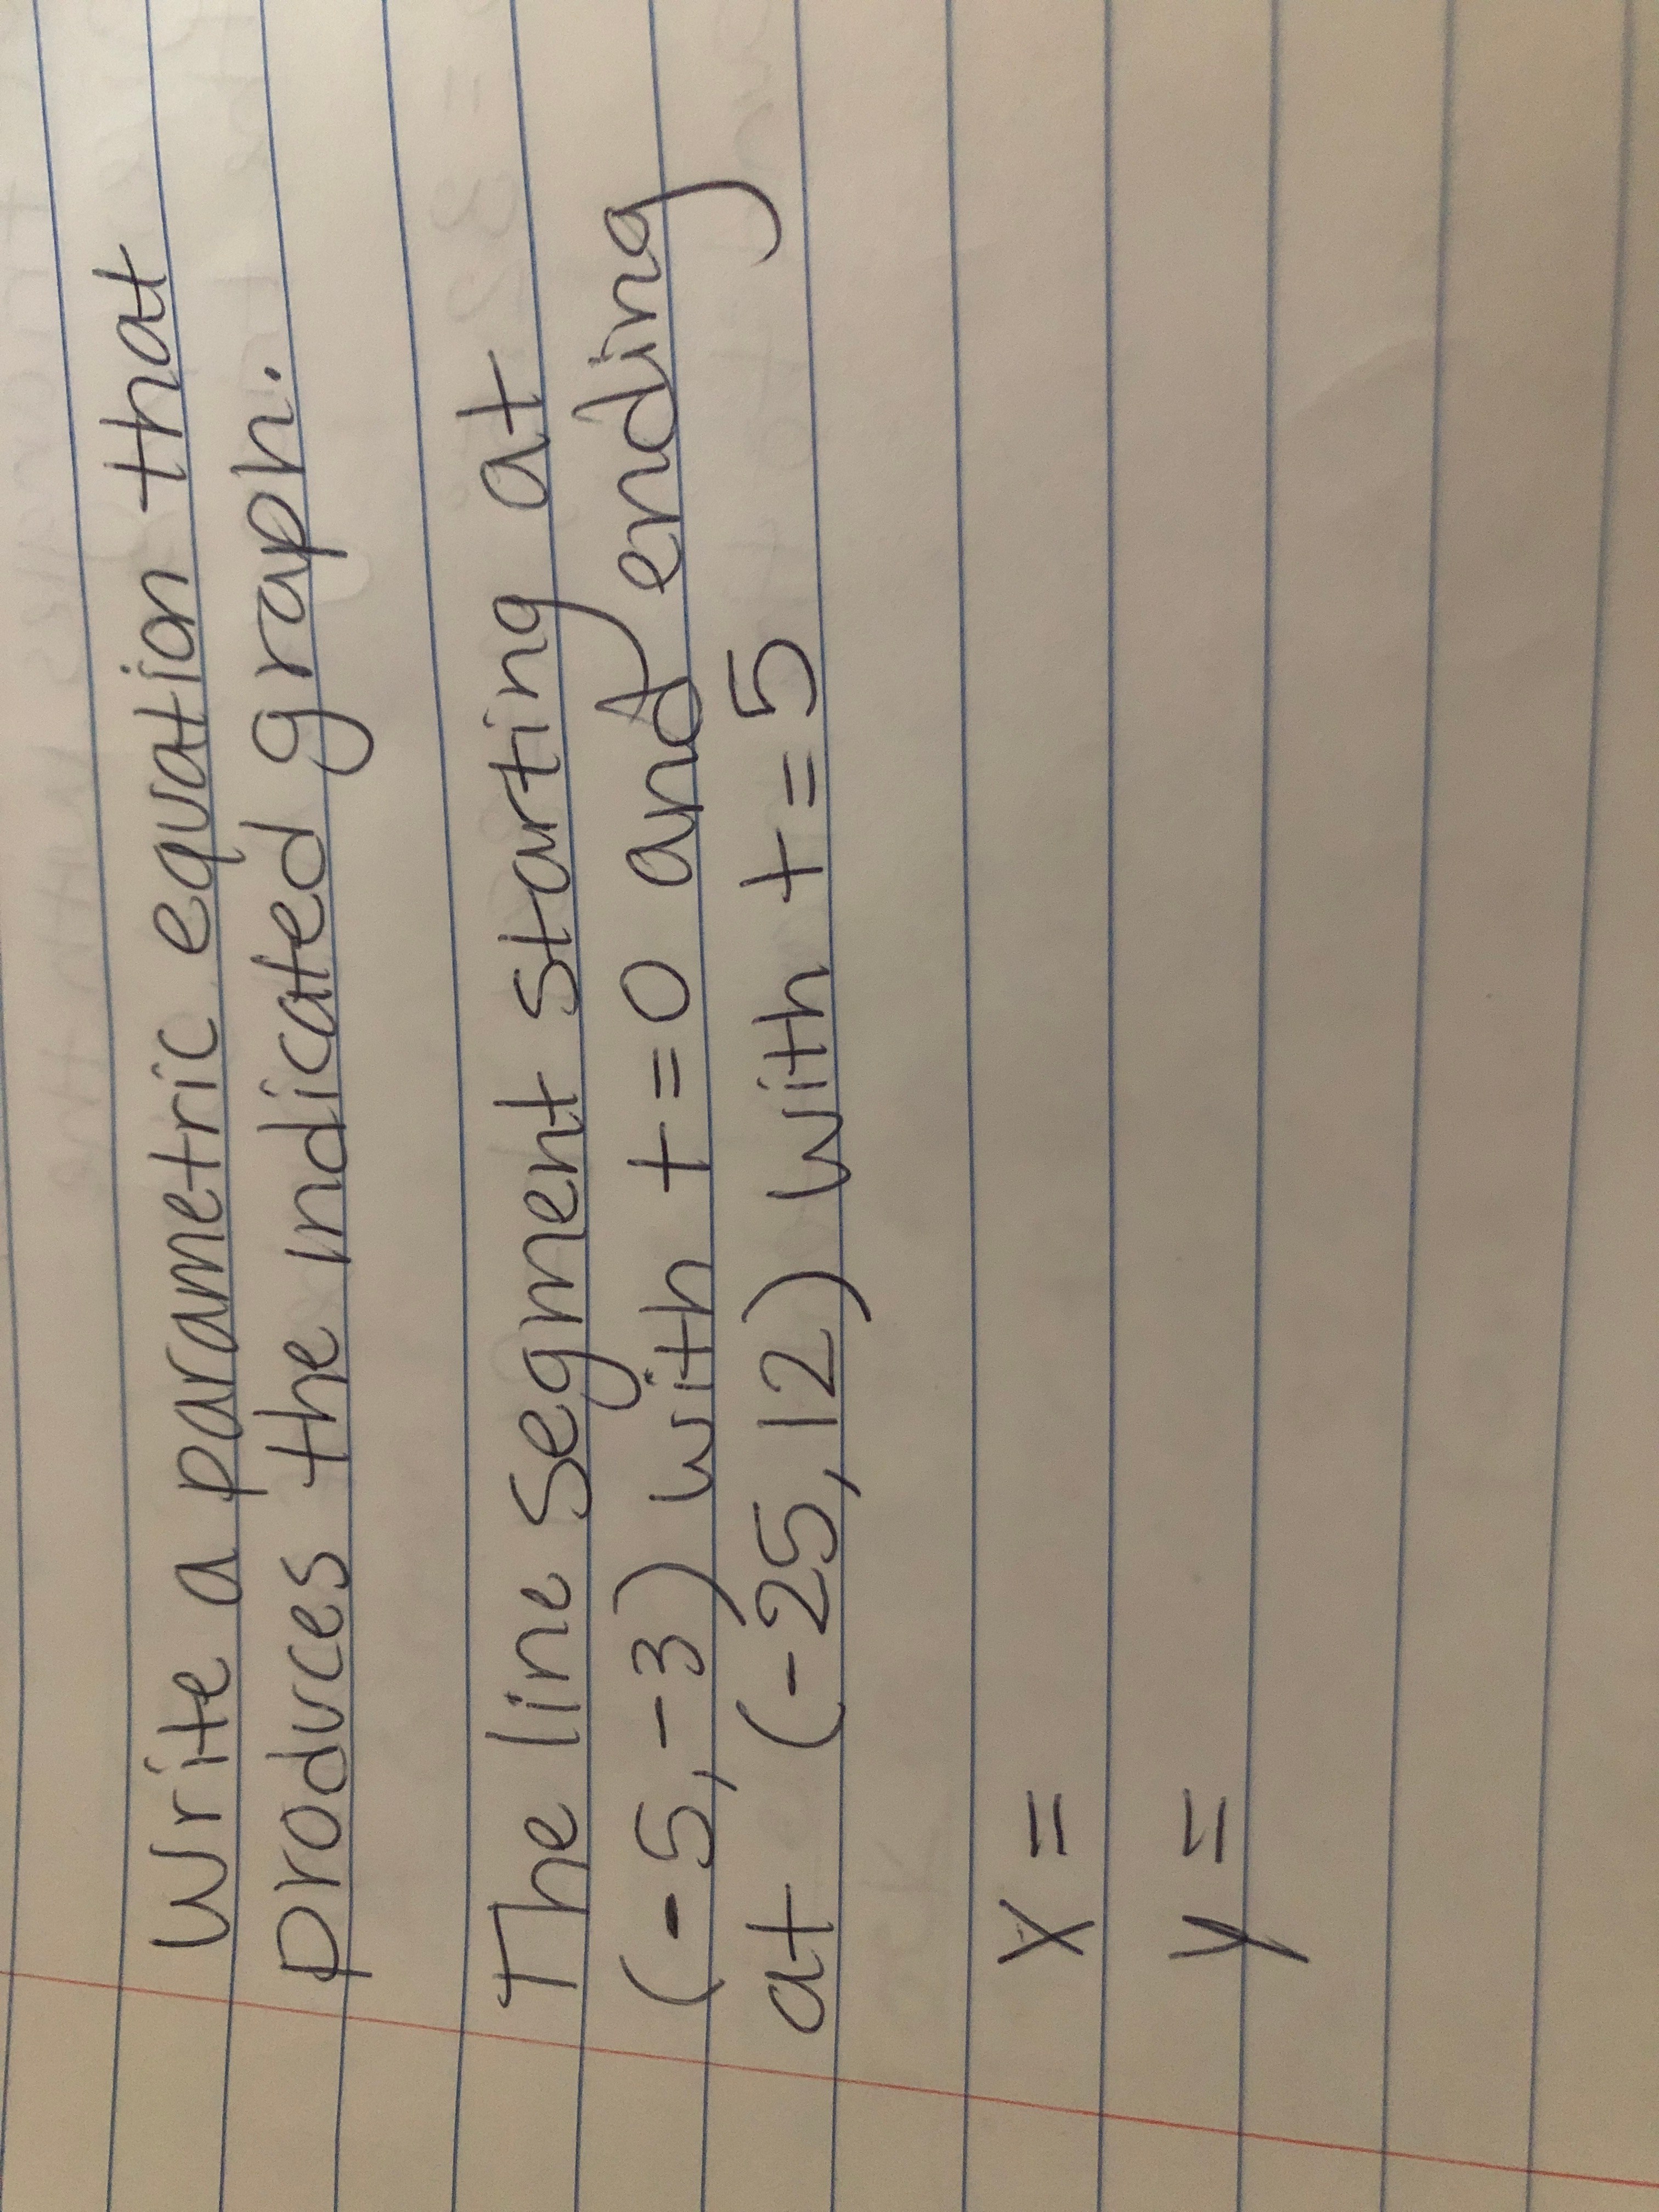 Write a parametric equation that
produces the indicated graph.
The line segment starting at
(-5,-3) with t=0 and ending
at (-25,12) with t=5
x =
y =